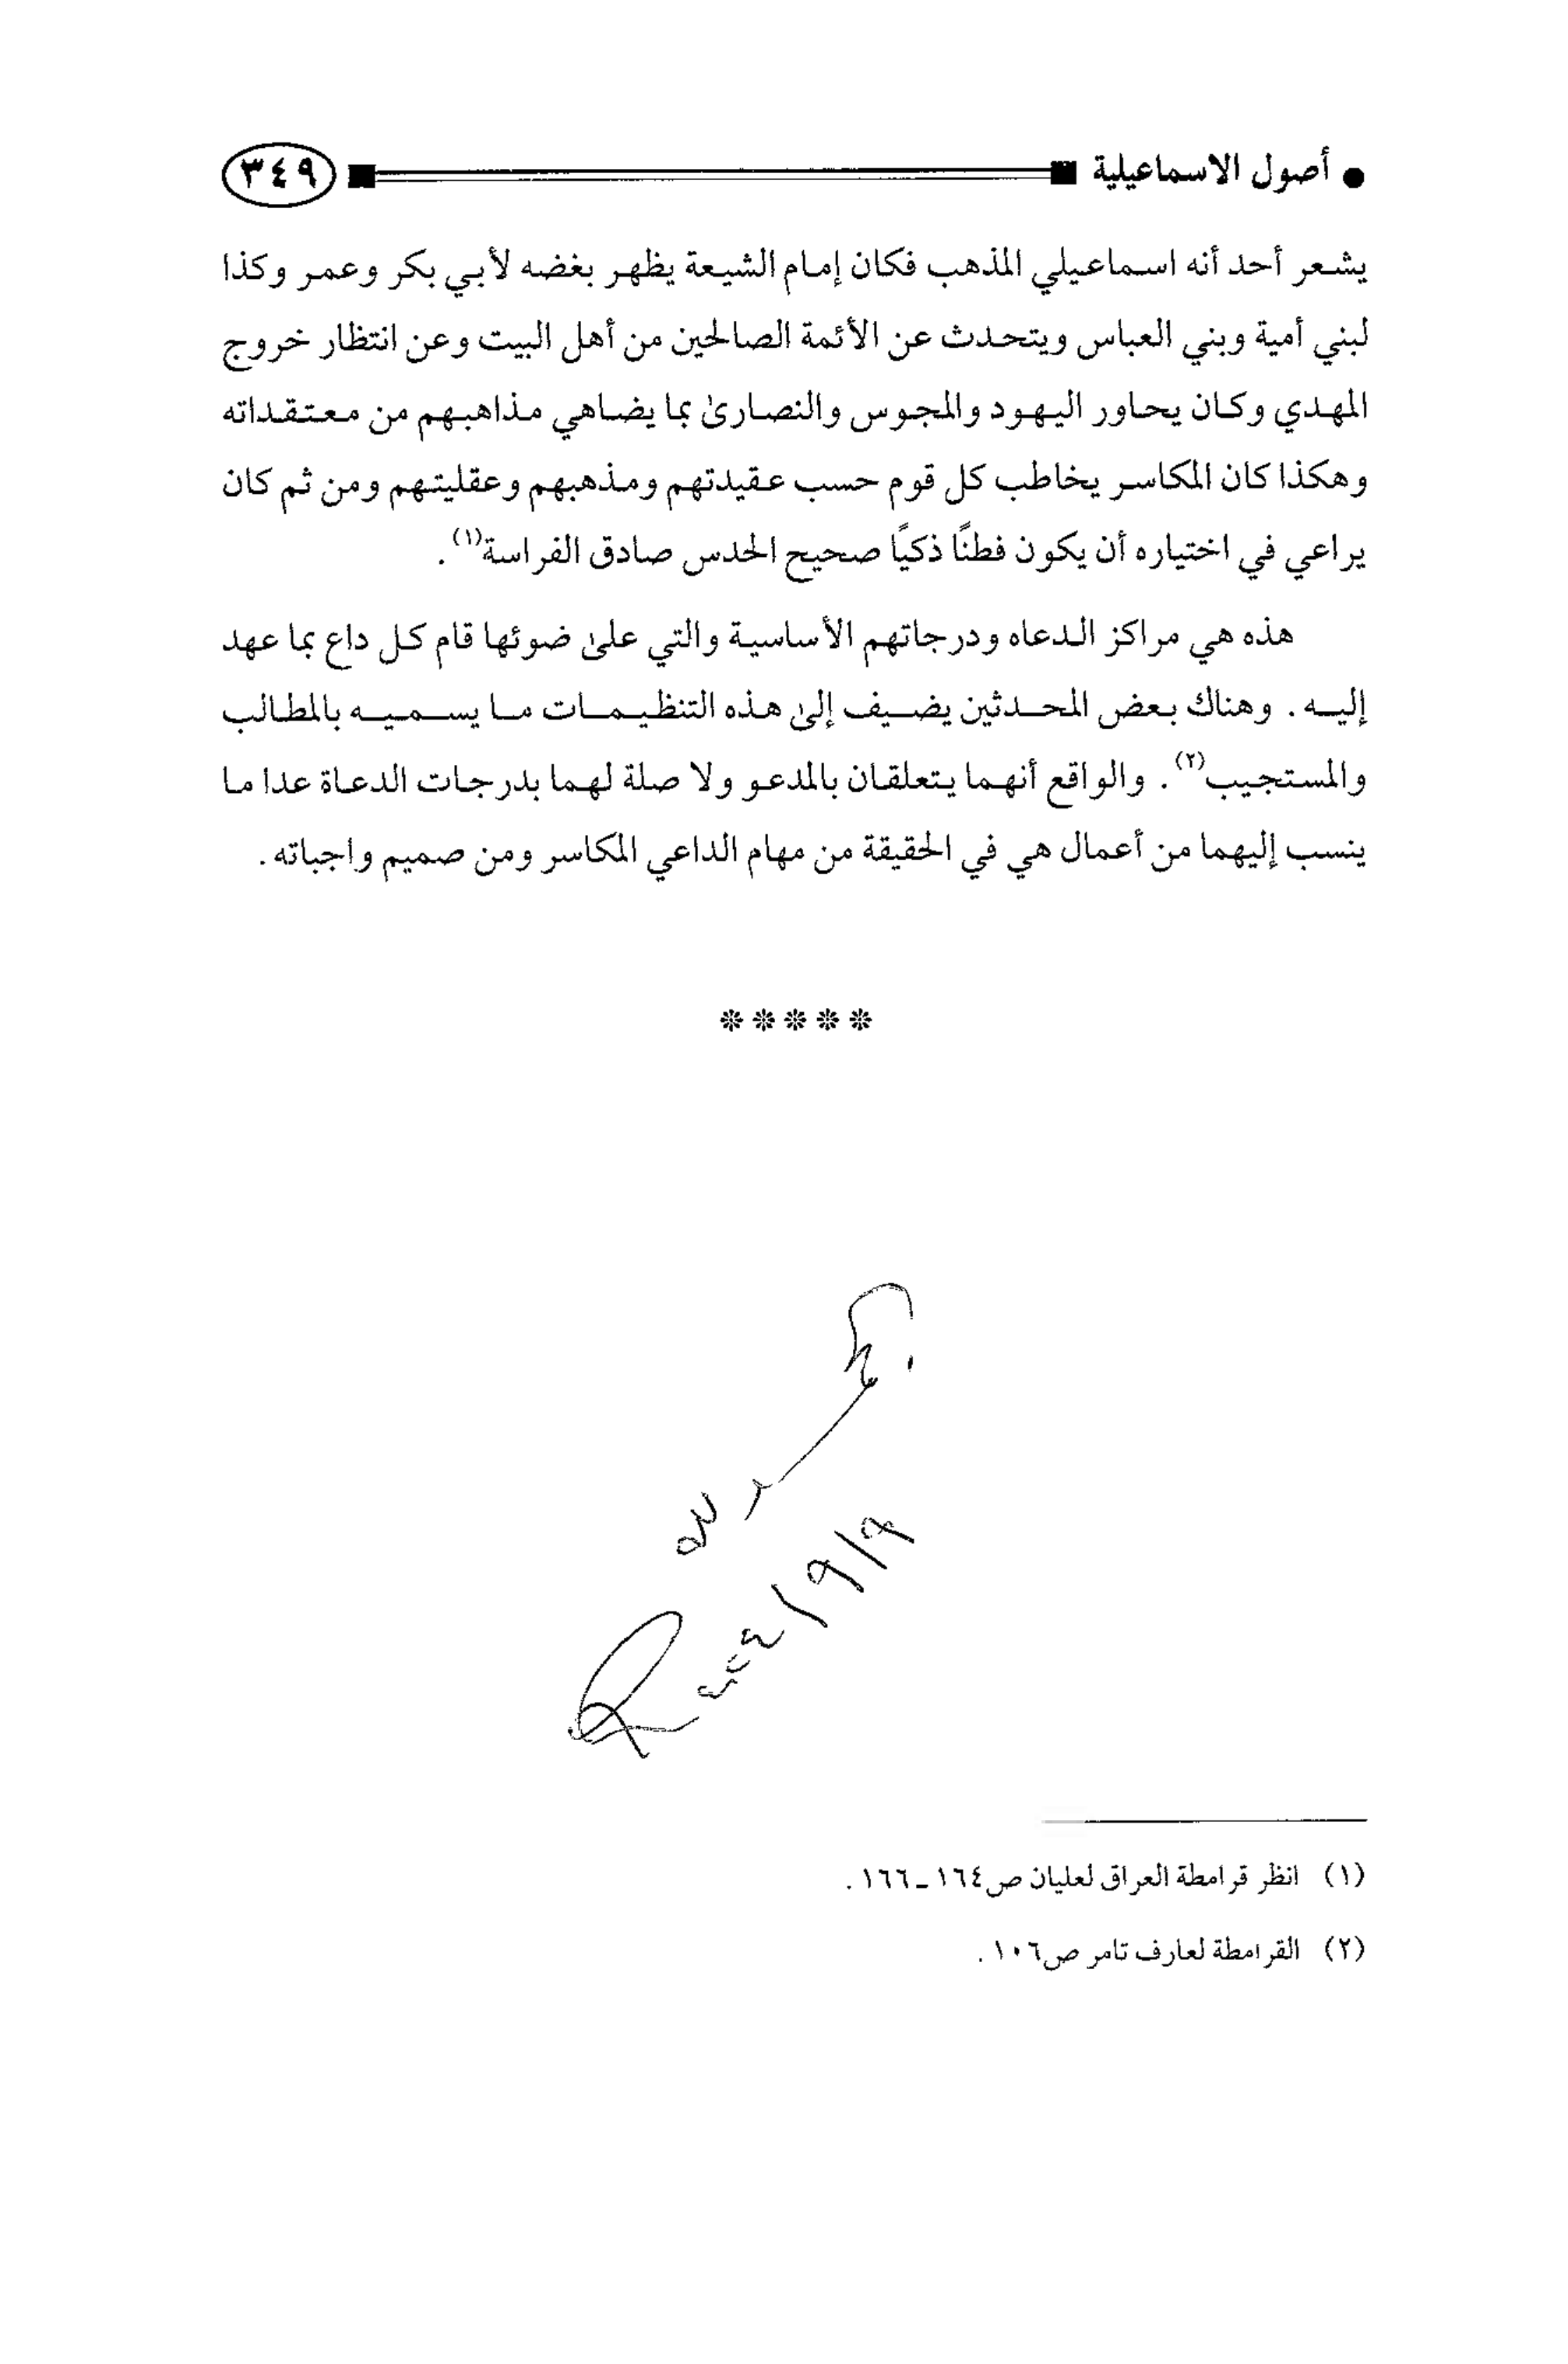 ● أصول الاسماعيلية ٣٤٩
يشعر أحد أنه اسماعيلي المذهب فكان إمام الشيعة يظهر بغضه لأبي بكر وعمر وكذا
لبني أمية وبني العباس ويتحدث عن الأئمة الصالحين من أهل البيت وعن انتظار خروج
المهدي وكان يحاور اليهود والمجوس والنصارىٰ بما يضاهي مذاهبهم من معتقداته
وهكذا كان المكاسر يخاطب كل قوم حسب عقيدتهم ومذهبهم وعقليتهم ومن ثم كان
يراعي في اختياره أن يكون فطنًا ذكيًا صحيح الحدس صادق الفراسة(١) .
هذه هي مراكز الدعاه ودرجاتهم الأساسية والتي علىٰ ضوئها قام كل داع بما عهد
إليه . وهناك بعض المحدثين يضيف إلىٰ هذه التنظيمات ما يسميه بالمطالب
والمستجيب(٢) . والواقع أنهما يتعلقان بالمدعو ولا صلة لهما بدرجات الدعاة عدا ما
ينسب إليهما من أعمال هي في الحقيقة من مهام الداعي المكاسر ومن صميم واجباته .
*****
(١) انظر قرامطة العراق لعليان ص١٦٤ ـ ١٦٦ .
(٢) القرامطة لعارف تامر ص١٠٦ .